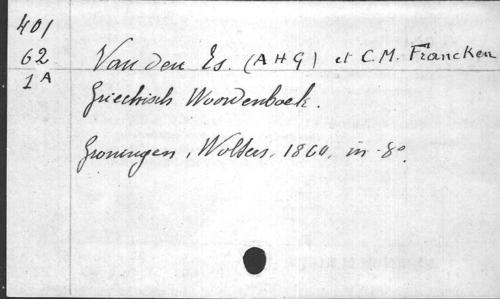 401
62 Van den Es. (A H G) et C.M. Francken
1 A
Griechisch Woordenboek.
Groningen, Wolters, 1860, in-8º.